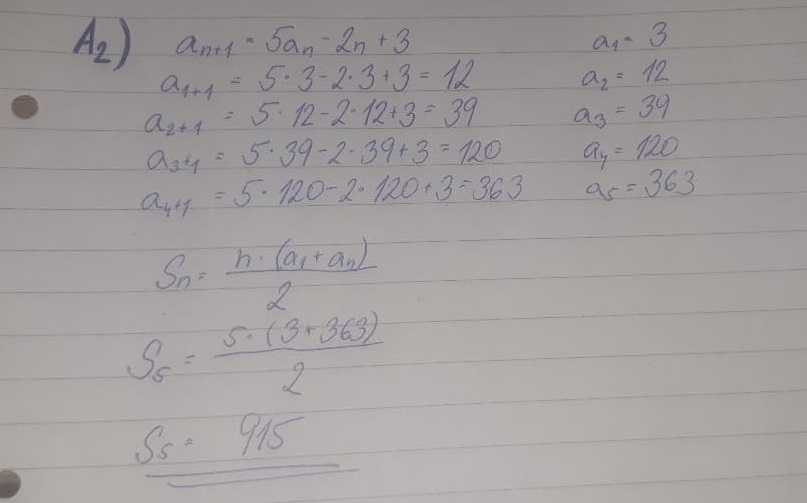 A₂) aₙ₊₁ = 5aₙ - 2n + 3 a₁ = 3
a₁₊₁ = 5·3-2·3+3 = 12 a₂ = 12
a₂₊₁ = 5·12-2·12+3 = 39 a₃ = 39
a₃₊₁ = 5·39-2·39+3 = 120 a₄ = 120
a₄₊₁ = 5·120-2·120+3 = 363 a₅ = 363
Sₙ = n·(a₁+aₙ)
2
S₅ = 5·(3+363)
2
S₅ = 915